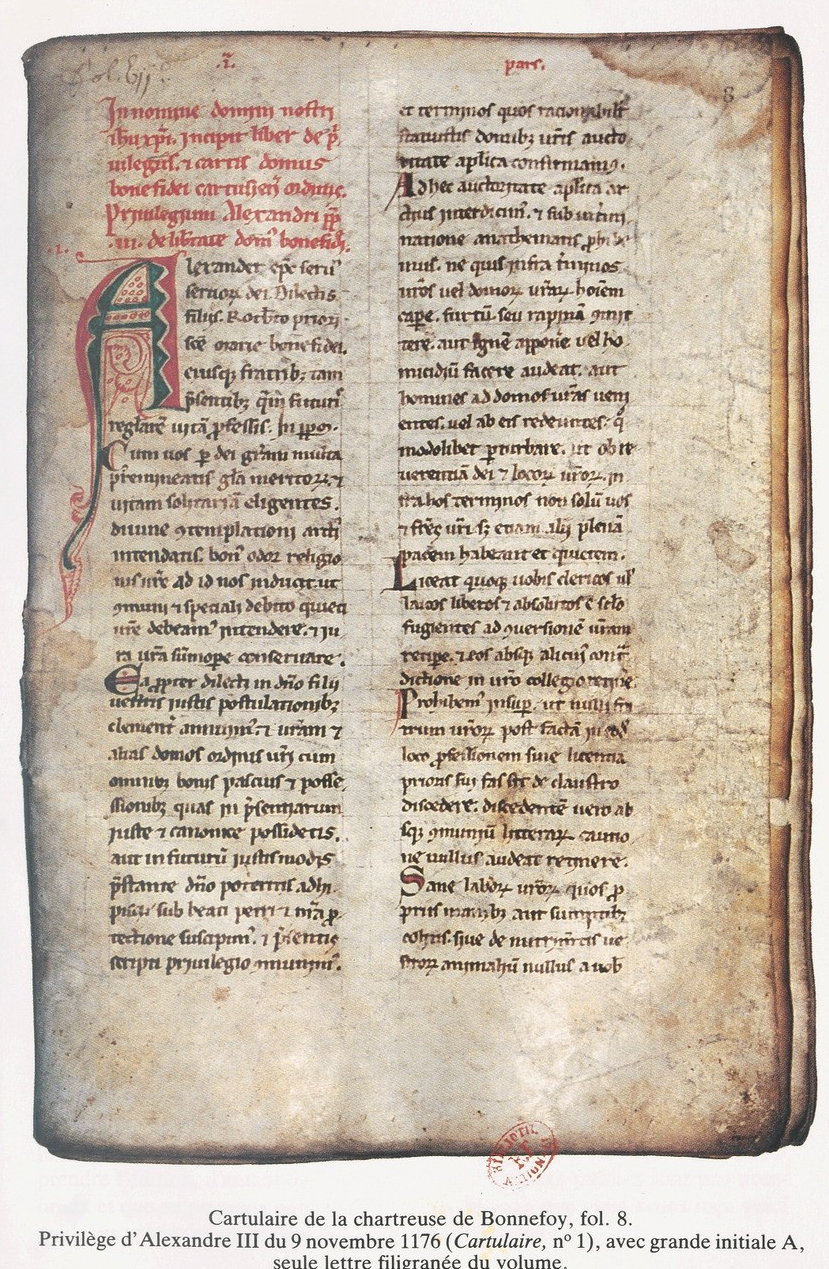 Fol. Eij
.i. pars.
8
In nomine domini nostri
ihu xpi. Incipit liber de p̄
uilegiis. ⁊ cartis domus
bone fidei cartusien̄ ordinis.
Priuilegium Alexandri pp̄
.iii. de libtate dom̄ bonefidi.
.1.
Alexander ep̄c seru᷒
seruoꝝ dei Dilectis
filiis. Rotbto priori
sc̄e marie bone fidei.
eiusq; fratrib; tam
p̄sentib; qm̄ futuri᷒
reglarē uitā ꝓfessis. In ppm̄.
Cum uos ꝑ dei gr̄am multa
p̄emineatis gl̄a meritoꝝ. ⁊
uitam solitariā eligentes.
diuine ꝯtemplationi
intendatis. bon᷒ odor religio
nis ur̄e ad id nos inducit. ut
ꝯmuni ⁊ speciali debito quieti
ur̄e debeam᷒ intendere. ⁊ iu
ra ur̄a sūmope conseruare.
Ea ꝓpter dilecti in dn̄o filii
uestris iustis postulationib;
clement᷒ annuim᷒. ⁊ ur̄am ⁊
alias domos ordinis ur̄i cum
omnib; bonis pascuis ⁊ posse
ssionib; quas in p̄sentiarum
iuste ⁊ canonice possidetis.
aut in futurū iustis modis
p̄stante dn̄o poteritis adhi
pisci sub beati petri ⁊ nr̄a ꝓ
tectione suscipim᷒. ⁊ p̄sentis
scripti priuilegio ꝯmunim᷒.
et terminos quos racionabilit̄
statuistis domib; ur̄is aucto
ritate aplica confirmam᷒.
Ad hec auctoritate aplica ar
ctius interdicim᷒. ⁊ sub
natione anathematis ꝓhibe
mus. ne quis infra t̄minos
ur̄os uel domoꝝ ur̄aꝝ hoīem
cape. furtū. seu rapinā ꝯmit
tere. aut ignē apponē. uel ho
micidiū facere audeat. aut
homines ad domos ur̄as ueni
entes. uel ab eis redeuntes. q̊
modolibet ꝑturbare. ut ob re
uerentiā dei ⁊ locoꝝ ur̄oꝝ. in
fra hos terminos non solū uos
⁊ fr̄es ur̄i s; etiam alii plenā
pacem habeant et quietem.
Liceat quoq; uobis clericos ul̄
laicos liberos ⁊ absolutos e sc̄lo
fugientes ad ꝯuersionē ur̄am
recipe. ⁊ eos absq; alicui᷒ cont̄
dictione in ur̄o collegio retinē.
Prohibem᷒ insup. ut nulli fr̄
trum ur̄oꝝ post factā in eod̄
loco ꝓfessionem sine licentia
prioris sui fas sit de claustro
discedere. discedentē uero ab
sq; ꝯmuniū litteraꝝ cautio
ne nullus audeat retinere.
Sane laboꝝ ur̄oꝝ quos ꝓ
priis manib; aut sumptib;
colitis. siue de nutrim̄tis ue
stroꝝ animaliū nullus a uob̄
Cartulaire de la chartreuse de Bonnefoy, fol. 8.
Privilège d'Alexandre III du 9 novembre 1176 (Cartulaire, nº 1), avec grande initiale A,
seule lettre filigranée du volume.